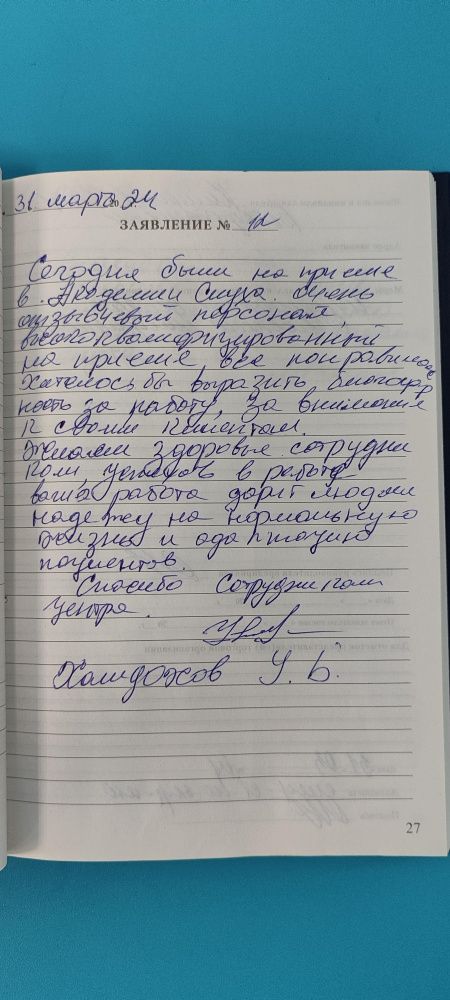 31 марта 2024
ЗАЯВЛЕНИЕ № 12
Сегодня были на приеме
в Академии Слуха. Очень
отзывчевый персонал,
высококвалифицированный
на приеме все понравилось
Хотелось бы выразить благодар
ность за работу, за внимание
к своим клиентам.
Желаем здоровья сотрудни
кам, успехов в работе
ваша работа дарит людям
надежду на нормальную
жизнь и адаптацию
пациентов.
Спасибо сотрудникам
центра.
Халидохов У. Б.
27